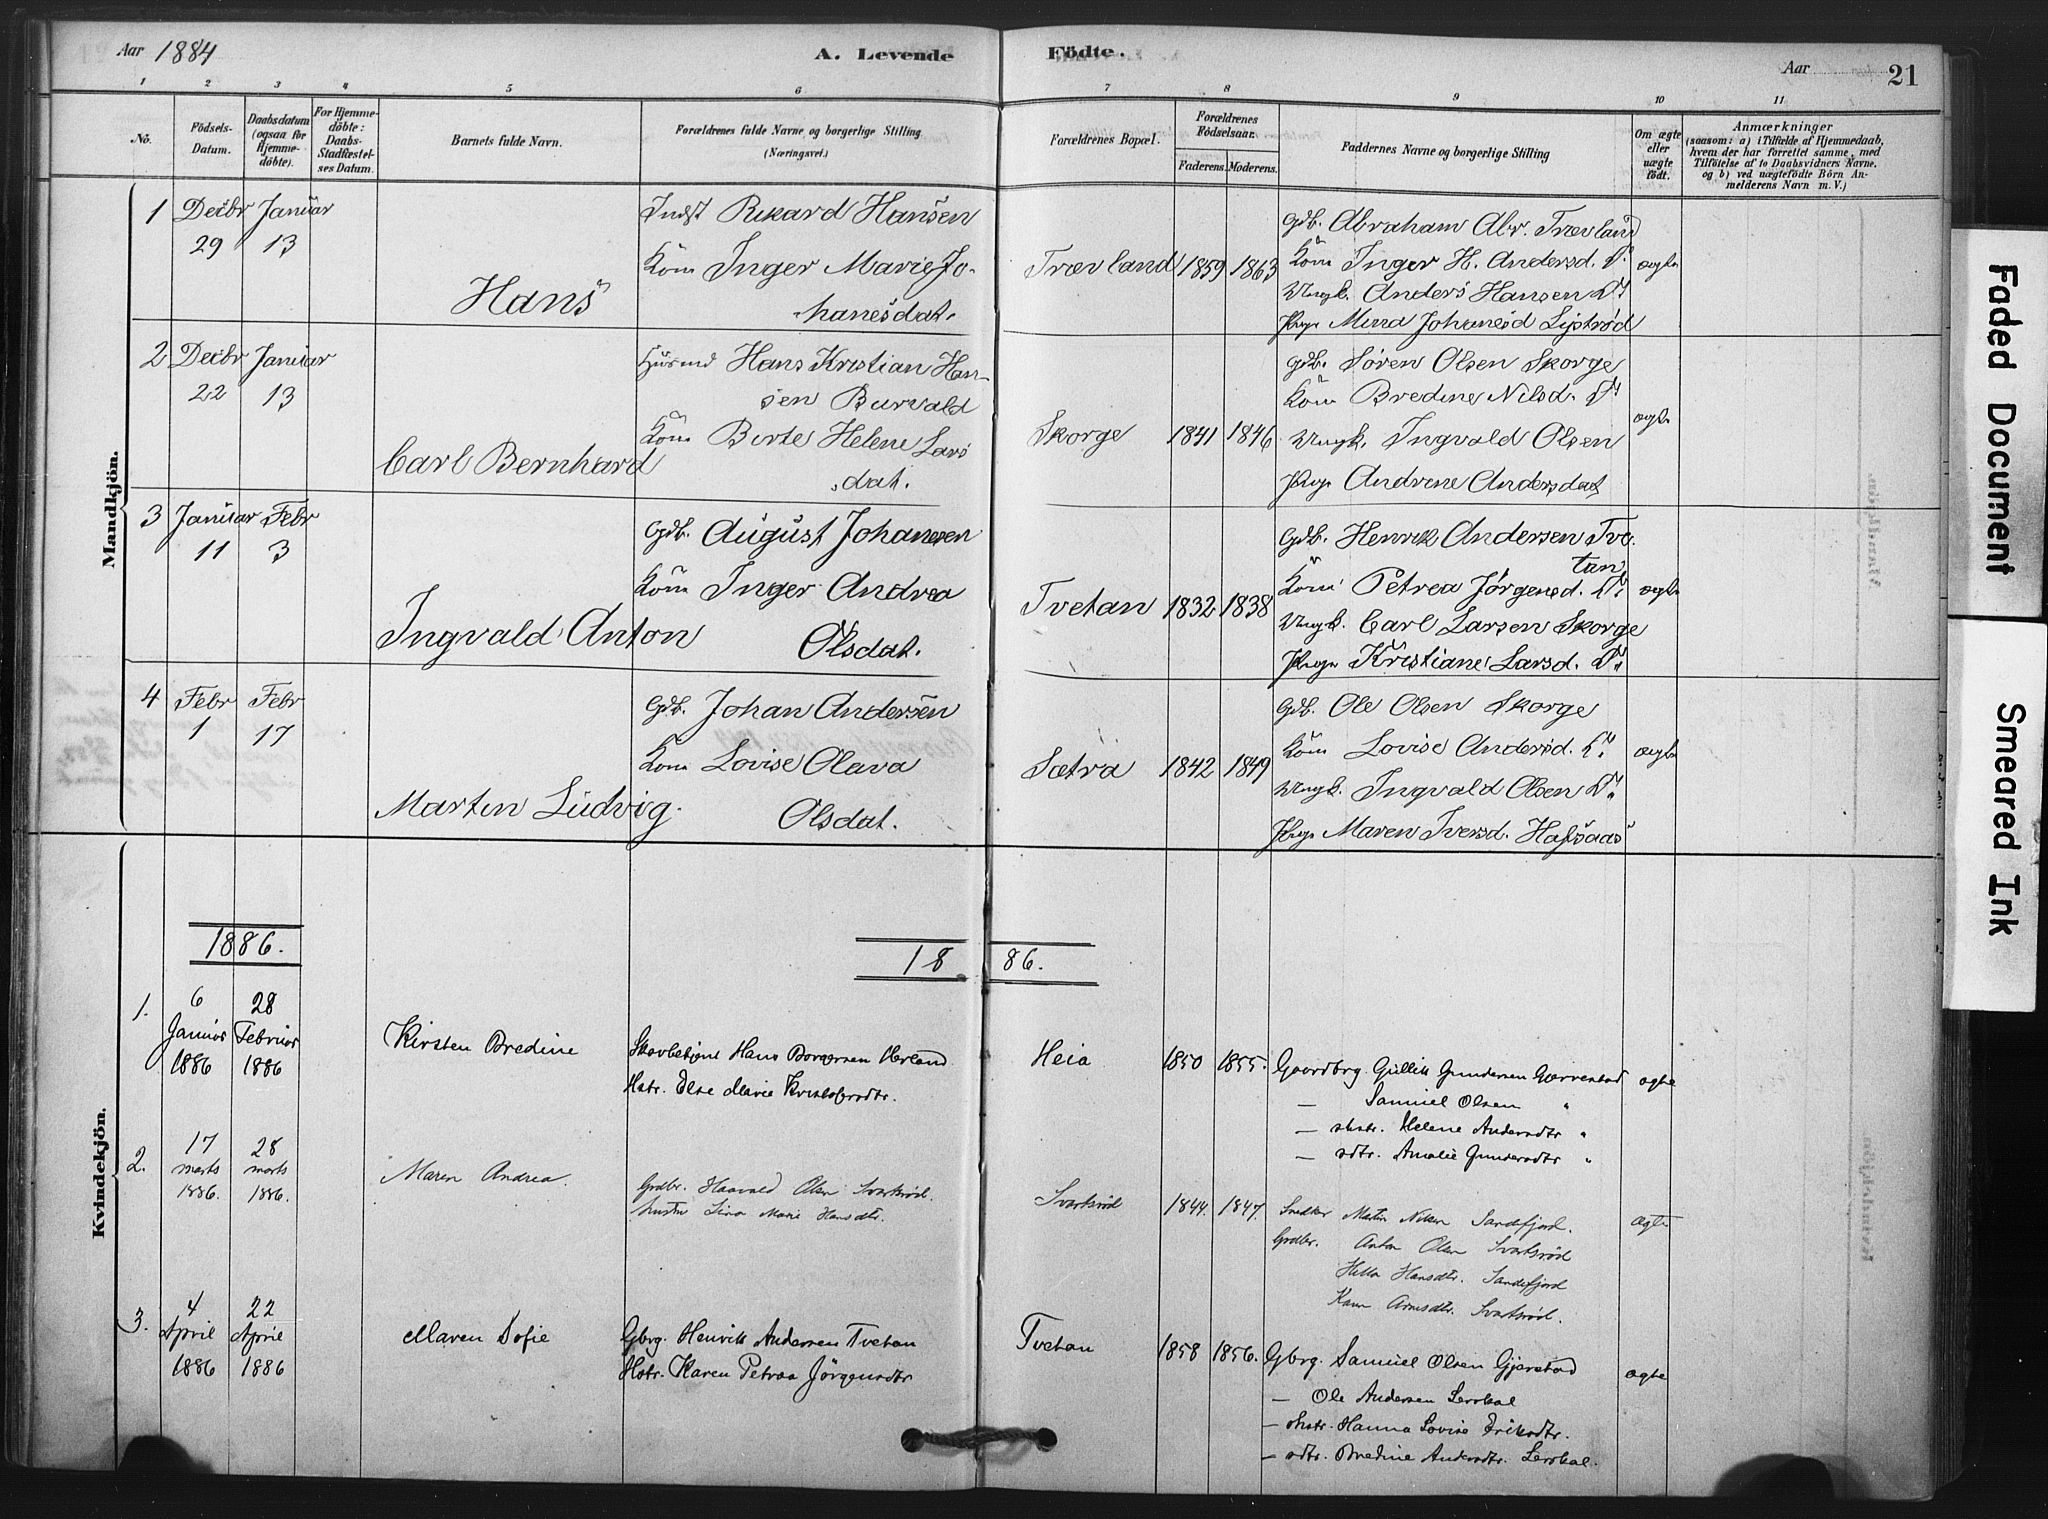 Aar 1884
A. Levende Födte.
Aar 21
1 2 3 4 5 6 7 8 9 10 11
No.
Födsels-Datum.
Daabsdatum (ogsaa for Hjemme-döbte).
For Hjemme-döbte: Daabs-Stadfæstel-ses Datum.
Barnets fulde Navn.
Forældrenes fulde Navne og borgerlige Stilling
(Næringsvei.)
Forældrenes Bopæl.
Forældrenes Födselsaar.
Faderens. Moderens.
Faddernes Navne og borgerlige Stilling
Om ægte eller uægte födt.
Anmærkninger
(saasom: a) i Tilfælde af Hjemmedaab,
hvem der har forrettet samme, med
Tilföielse af to Daabsvidners Navne.
og b) ved uægtefödte Börn An-
melderens Navn m. V.)
Mandkjön.
1 Decbr 29 Januar 13
Hans
Indst Rikard Hansen
Kone Inger Marie Jo-
hanesdat.
Trævland 1859 1863
gdb. Abraham Abr. Trævland
Kone Inger H. Andersd. Do
Ungk. Anders Hansen Do
Pige Mina Johanesd Lystrød
ægte
2 Decbr 22 Januar 13
Carl Bernhard
Husmd Hans Kristian Han-
sen Burvald
Kone Birte Helene Lars
dat.
Skorge 1841 1846
gdb. Søren Olsen Skorge
Kone Bredine Nilsd. Do
Ungk. Ingvald Olsen
Pige Andrine Andersdat
ægte
3 Januar 11 Febr 3
Ingvald Anton
gdb. August Johanesen
Kone Inger Andrea
Olsdat.
Tvetan 1832 1838
gdb. Henrik Andersen Tve
tan
Kone Petrea Jørgensd. Do
Ungk. Carl Larsen Skorge
Pige Kristiane Larsd. Do
ægte
4 Febr 1 Febr 17
Martin Ludvig.
gdb. Johan Andersen
Kone Lovise Olava
Olsdat.
Sætra 1842 1849
gdb. Ole Olsen Skorge
Kone Lovise Andersd. Do
Ungk. Ingvald Olsen Do
Pige Maren Iversd. Hafsaas
ægte
Kvindekjön.
1886. 1886.
1. 6 Januar 1886 28 Februar 1886
Kirsten Bredine
Skovbetjent Hans Overland
Hstr. Else Marie Kristofersdtr.
Heia 1850 1855.
Gaardbrg. Gullik Gundersen
— Samuel Olsen "
— Hstr. Helene Andersdtr "
— dtr. Amalie Gundersdtr "
ægte
2. 17 marts 1886. 28 marts 1886.
Maren Andrea.
Grdbr. Haavald Olsen Svartsrød.
hustru Lina Marie Hansdtr.
Svartsrød 1844. 1847.
Snedker Martin Nilsen Sandefjord.
Grdbr. Anton Olsen Svartsrød
Hella Hansdtr. Sandefjord
Svartsrød.
ægte
3. 4 April 1886 22 April 1886
Maren Sofie
Gbrg. Henrik Andersen Tvetan
Hstr. Karen Petrea Jørgensdtr
Tvetan 1858 1856.
Gbrg. Samuel Olsen Gjerstad
— Ole Andersen Lerskal
— Hstr. Hanna Lovise Eriksdtr.
— dtr. Bredine Andersdtr. Lerskal.
ægte
Faded Document
Smeared Ink